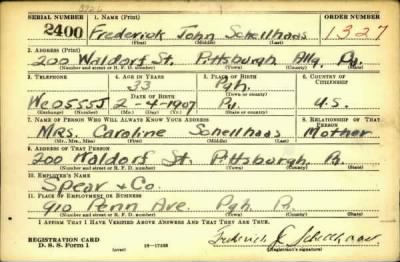 SERIAL NUMBER 1. NAME (Print) ORDER NUMBER
2400 Frederick John Schellhaas 1327
(First) (Middle) (Last)
2. ADDRESS (Print)
200 Waldorf St. Pittsburgh Allg. Pa.
(Number and street or R. F. D. number) (Town) (County) (State)
3. TELEPHONE 4. AGE IN YEARS 5. PLACE OF BIRTH 6. COUNTRY OF CITIZENSHIP
33 Pgh.
DATE OF BIRTH (Town or county)
We 0555J 2-4-1907 Pa. U.S.
(Exchange) (Number) (Mo.) (Day) (Yr.) (State or country)
7. NAME OF PERSON WHO WILL ALWAYS KNOW YOUR ADDRESS 8. RELATIONSHIP OF THAT PERSON
Mrs. Caroline Schellhaas Mother
(Mr., Mrs., Miss) (First) (Middle) (Last)
9. ADDRESS OF THAT PERSON
200 Waldorf St. Pittsburgh, Pa.
(Number and street or R. F. D. number) (Town) (County) (State)
10. EMPLOYER'S NAME
Spear & Co.
11. PLACE OF EMPLOYMENT OR BUSINESS
910 Penn Ave. Pgh. Pa.
(Number and street or R. F. D. number) (Town) (County) (State)
I AFFIRM THAT I HAVE VERIFIED ABOVE ANSWERS AND THAT THEY ARE TRUE.
REGISTRATION CARD Frederick J. Schellhaas
D. S. S. Form 1 (over) (Registrant's signature)